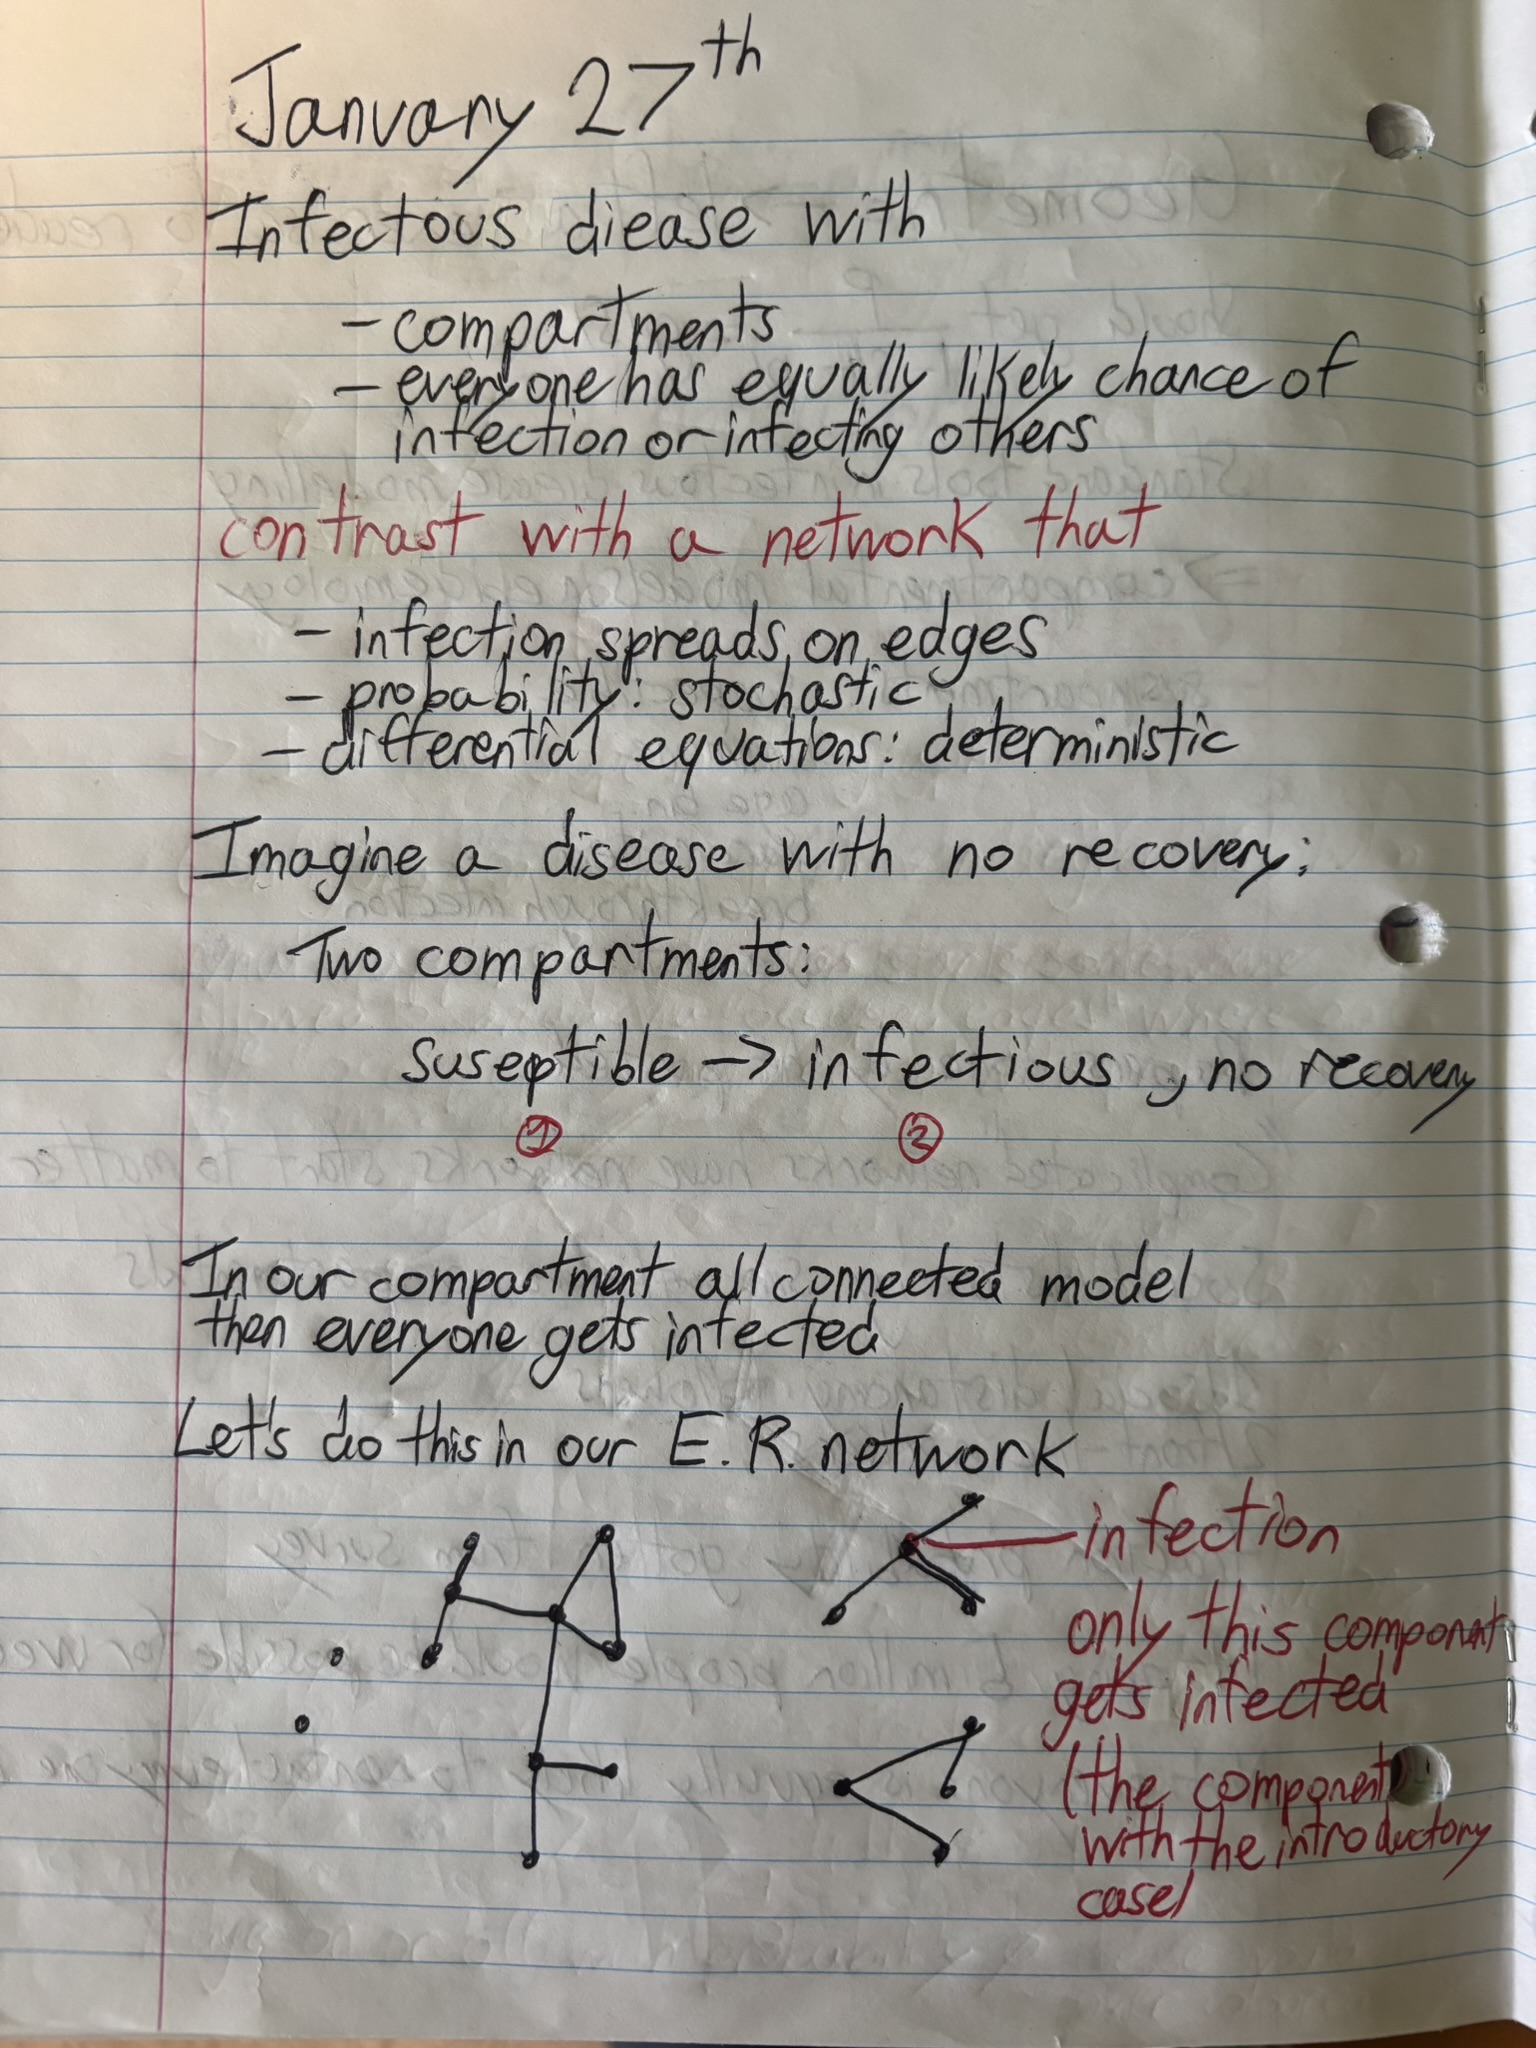 January 27th
Infectous diease with
- compartments
- everyone has equally likely chance of
infection or infecting others
contrast with a network that
- infection spreads on edges
- probability: stochastic
- differential equations: deterministic
Imagine a disease with no recovery:
Two compartments:
suseptible -> infectious, no recovery
1 2
In our compartment all connected model
then everyone gets infected
Let's do this in our E.R. network
infection
only this component
gets infected
(the component
with the introductory
case)